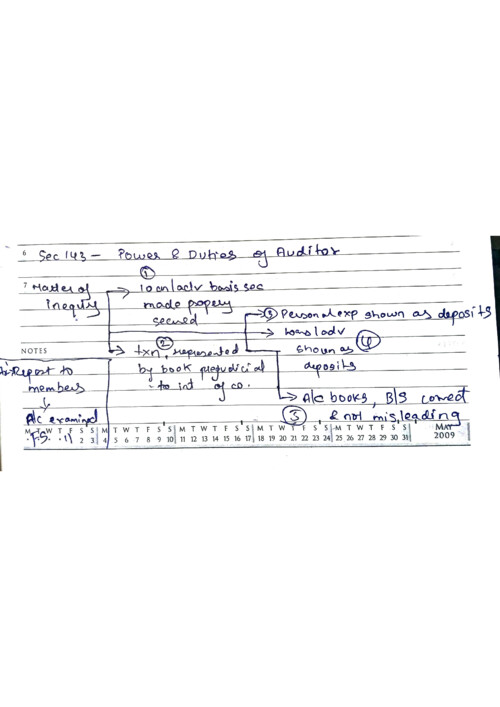 6 Sec 143 - Power & Duties of Auditor
①
7 Matter of
inequiy
loan/adv basis sec
made propery
secured
⑤ Personal exp shown as deposits
loans/adv
shown as ④
deposits
NOTES
②
txn, represented
by book prejudicial
to int of co.
Report to
members
A/c examined
F.S.
A/c books, B/S correct
③ & not misleading
M T W T F S S M T W T F S S M T W T F S S M T W T F S S M T W T F S S MAY
2 3 4 5 6 7 8 9 10 11 12 13 14 15 16 17 18 19 20 21 22 23 24 25 26 27 28 29 30 31 2009